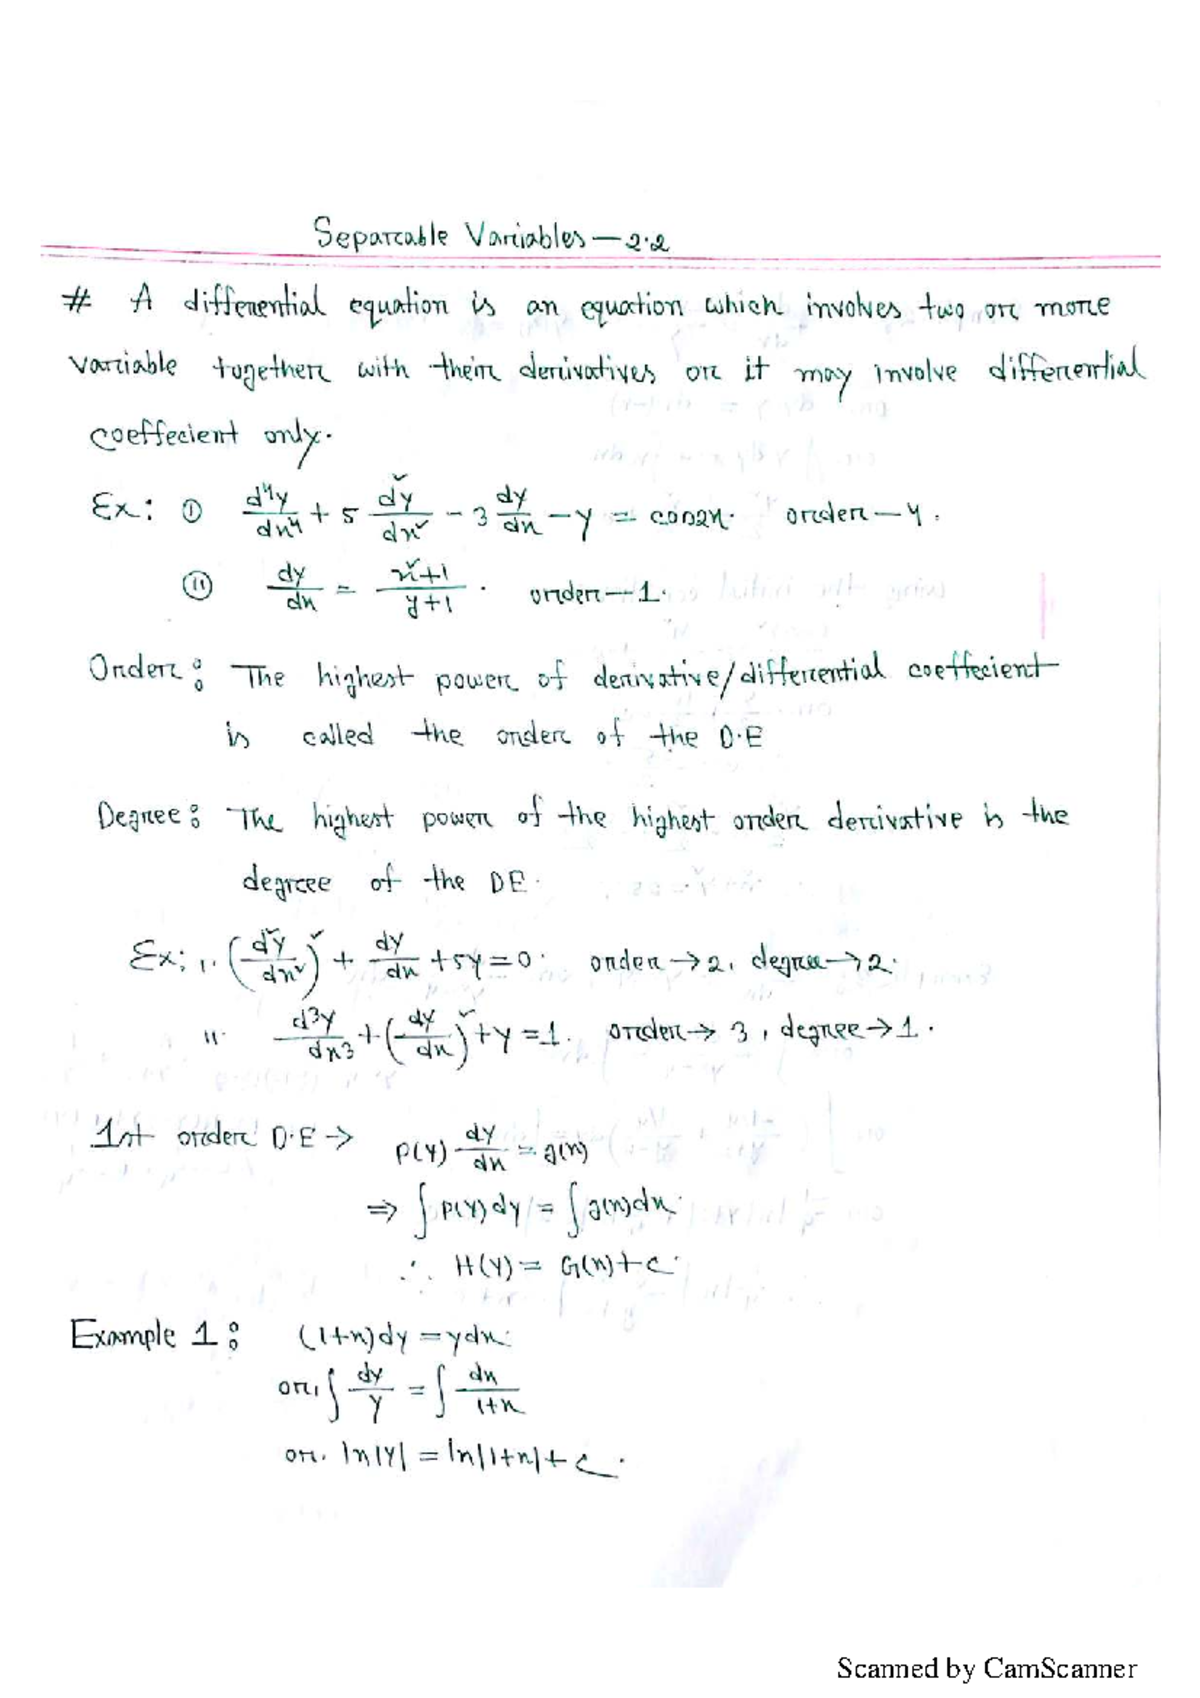 Separable Variables — 2.2
# A differential equation is an equation which involves two or more
variable together with their derivatives or it may involve differential
coeffecient only.
Ex: (i) d⁴y/dx⁴ + 5 d²y/dx² - 3 dy/dx - y = cos2x. order — 4.
(ii) dy/dx = x²+1/y+1. order — 1.
Order: The highest power of derivative/differential coeffecient
is called the order of the D.E
Degree: The highest power of the highest order derivative is the
degree of the DE.
Ex: i. (d²y/dx²)² + dy/dx + 5y = 0. order → 2, degree → 2.
ii. d³y/dx³ + (dy/dx)² + y = 1. order → 3, degree → 1.
1st order D.E → P(y) dy/dx = g(x)
⇒ ∫ P(y) dy = ∫ g(x) dx.
∴ H(y) = G(x) + c.
Example 1: (1+x)dy = ydx.
or, ∫ dy/y = ∫ dx/1+x
or, ln|y| = ln|1+x| + c.
Scanned by CamScanner